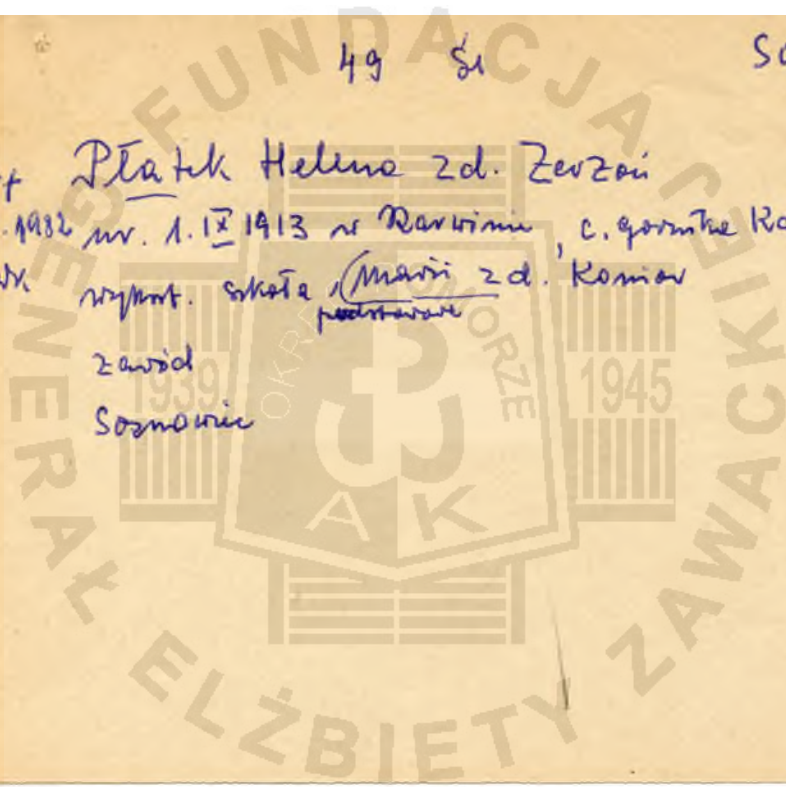 49 Śl
Płatek Helena zd. Zerzoń
.1982 ur. 1.IX 1913 w Karwinie, c. górnika
wykszt. szkoła, Marii zd. Koniar
podstawowa
zawód
Sosnowiec
FUNDACJA
GENERAŁ ELŻBIETY ZAWACKIEJ
POMORZE
1939 1945
AK